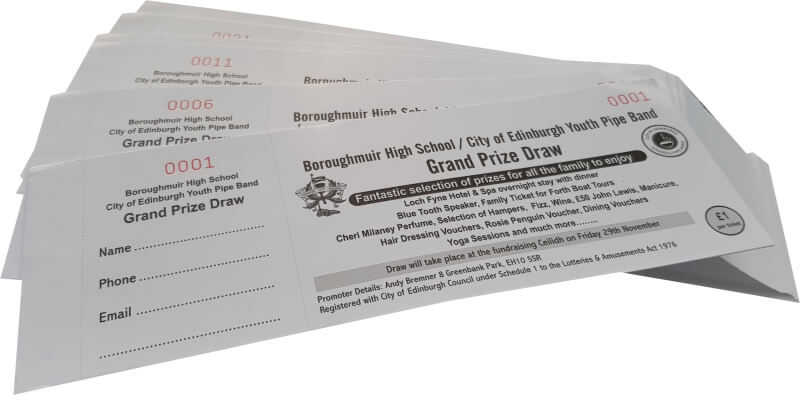 0021
0011
Boroughmuir High School
City of Edinburgh Youth Pipe Band
0006
Boroughmuir High School
City of Edinburgh Youth Pipe Band
Grand Prize Draw
0001
Boroughmuir High School
City of Edinburgh Youth Pipe Band
Grand Prize Draw
Name
Phone
Email
0001
Boroughmuir High School / City of Edinburgh Youth Pipe Band
Grand Prize Draw
Fantastic selection of prizes for all the family to enjoy
Loch Fyne Hotel & Spa overnight stay with dinner
Blue Tooth Speaker, Family Ticket for Forth Boat Tours
Cheri Milaney Perfume, Selection of Hampers, Fizz, Wine, £50 John Lewis, Manicure,
Hair Dressing Vouchers, Rosie Penguin Voucher, Dining Vouchers
Yoga Sessions and much more........
£1
per ticket
Draw will take place at the fundraising Ceilidh on Friday 29th November
Promoter Details: Andy Bremner 8 Greenbank Park, EH10 5SR
Registered with City of Edinburgh Council under Schedule 1 to the Lotteries & Amusements Act 1976